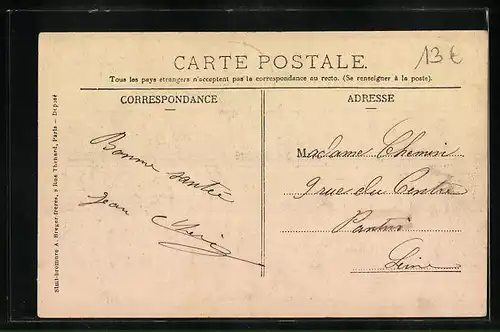 CARTE POSTALE.
13€
Tous les pays étrangers n'acceptent pas la correspondance au recto. (Se renseigner à la poste).
CORRESPONDANCE
Bonne santée
Jean
ADRESSE
Madame Chemin
9 rue du Centre
Pantin
Seine
Simili-bromure A. Breger frères, 9 Rue Thénard, Paris — Déposé